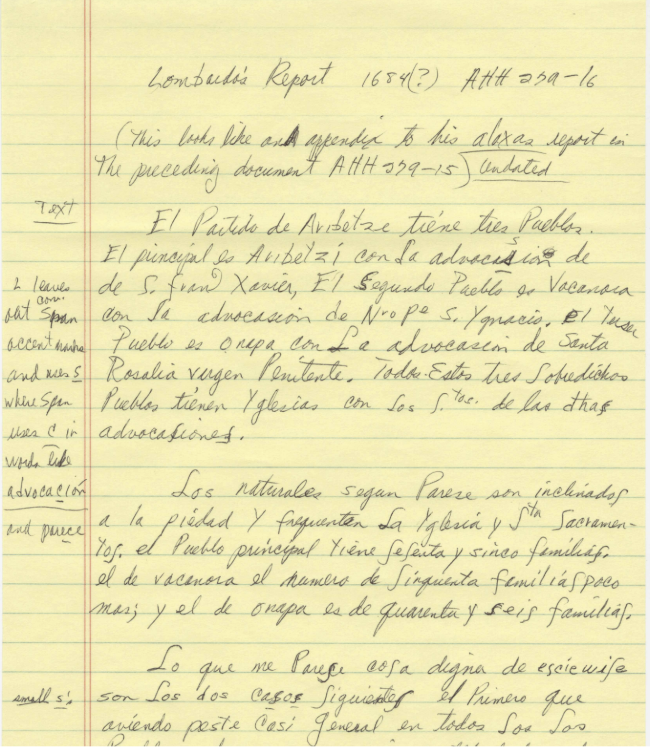 Lombardo's Report 1684(?) AHH 279-16
(This looks like an appendix to his aloxas report in
The preceding document AHH 279-15) Undated
Text
El Partido de Aribetze tiéne tres Pueblos.
El principal es Aribetzi con la advocasion de
de S. franco Xavier, El Segundo Pueblo es Vacanora
con la advocasion de N-ro Pe S. Ygnacio. El Terser
Pueblo es onapa con La advocasion de Santa
Rosalia virgen Penitente. Todos Estos tres Sobredichos
Pueblos tienen Yglesias con Los S.tos. de las dhas
advocasiones.
L leaves
out Span con.
accent marks
and uses s
where Span
uses c in
words like
advocación
and parece
Los naturales segun Parese son inclinados
a la piédad Y frequentan La Yglesiá y Stos Sacramen-
tos. el Pueblo principal tiene Sesenta y sinco familiás.
el de vacanora el numero de Sinquenta familiás poco
mas; y el de onapa es de quarenta y seis familiás.
Lo que me Parese cosa digna de
small s's
son Los dos casos Siguientes el Primero que
aviendo peste Casi General en todos Los Los